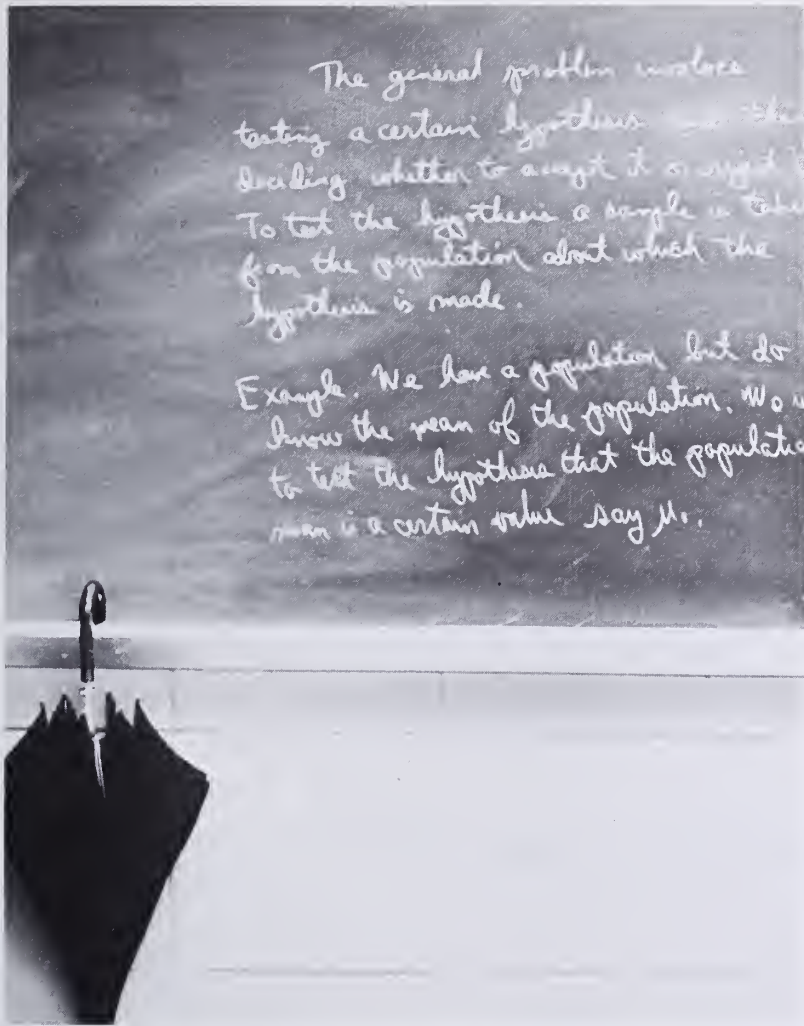 The general problem involves
testing a certain hypothesis the
deciding whether to accept it or reject
To test the hypothesis a sample is take
from the population about which the
hypothesis is made.
Example. We have a population but do
know the mean of the population. We w
to test the hypothesis that the populatio
mean is a certain value say μ₀.